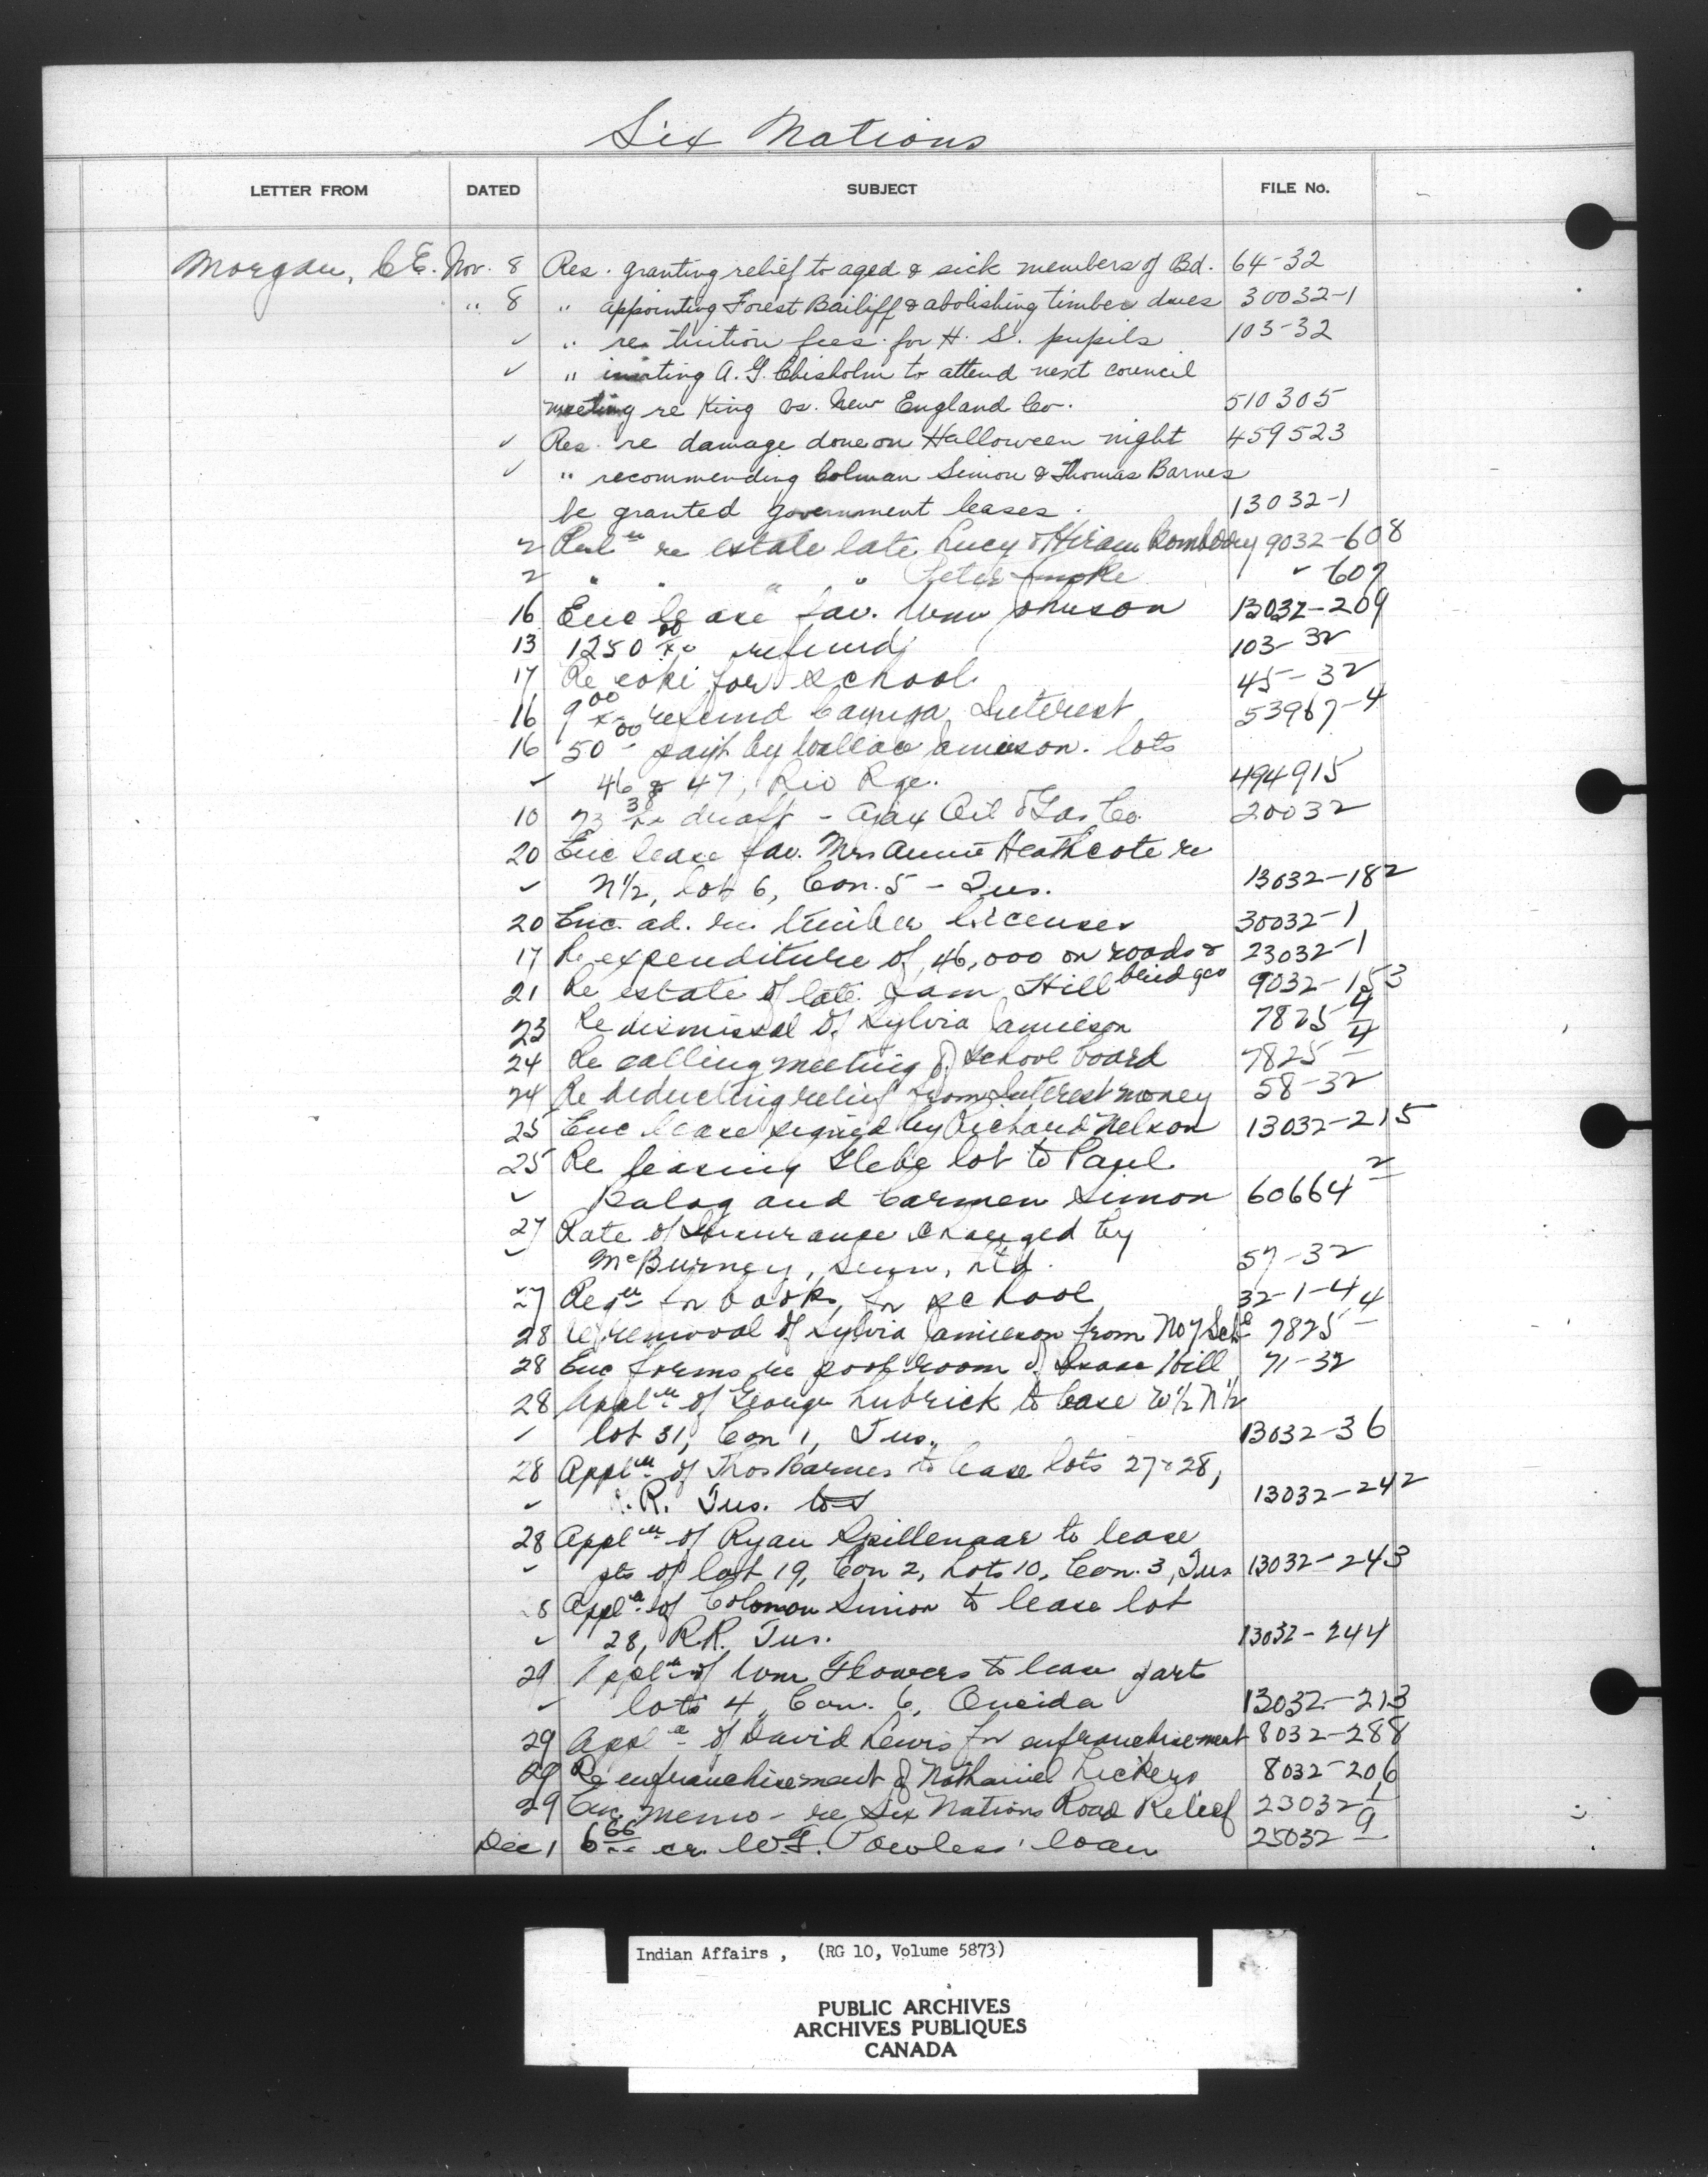 Six Nations
LETTER FROM DATED SUBJECT FILE No.
Morgan, C.E. Nov. 8 Res. granting relief to aged & sick members of Bd. 64-32
" 8 " appointing Forest Bailiff & abolishing timber dues 30032-1
✓ " re tuition fees for H. S. pupils 103-32
✓ " inviting A. G. Chisholm to attend next council
meeting re King vs. New England Co. 510305
✓ Res. re damage done on Halloween night 459523
✓ " recommending Colman Simon & Thomas Barnes
be granted government leases. 13032-1
2 re estate late Lucy & Hiram 9032-608
2 " " " " Peter Smoke " 607
16 Enc lease fav. Wm Johnson 13032-209
13 1250 00/xx refund 103-32
17 Re coke for school 45-32
16 9 00/xx refund Cayuga Interest 53967-4
16 50 00 paid by Wallace Jamieson. lots
✓ 46 & 47, Rio Rge. 494915
10 73 38/xx draft - Ajax Oil & Gas Co. 20032
20 Enc lease fav. Mrs Annie Heathcote re
✓ N½, Lot 6, Con. 5 - Tus. 13032-182
20 Enc. ad. re. timber licenses 30032-1
17 Re expenditure of 46,000 on roads & bridges 23032-1
21 Re estate of late Sam Hill 9032-153
23 Re dismissal of Sylvia Jamieson 7825-4
24 Re calling meeting of school board 7825-4
24 Re deducting relief from Interest money 58-32
25 Enc lease signed by Richard Nelson 13032-215
25 Re leasing Glebe lot to Paul
✓ Balog and Carmen Simon 60664-2
27 Rate of Insurance charged by
✓ McBurney, , Ltd. 57-32
27 Reqn for books for school 32-1-4
28 Re removal of Sylvia Jamieson from No 7 Schl 7825-4
28 Enc forms re pool room of Isaac Hill 71-32
28 Appln of George Lubrick to lease W½ N½
✓ lot 31, Con 1, Tus. 13032-36
28 Appln of Thos Barnes to lease lots 27 & 28,
✓ R.R. Tus. lot 13032-242
28 Appln of Ryan Spillenaar to lease
✓ pts of lot 19, Con 2, Lots 10, Con. 3, Tus 13032-243
28 Appln of Colomon Simon to lease lot
✓ 28, R.R. Tus. 13032-244
29 Appln of Wm Flowers to lease part
✓ lots 4, Con. 6, Oneida 13032-213
29 Appln of David Lewis for enfranchisement 8032-288
29 Re enfranchisement of Nathaniel Lickers 8032-206
29 Enc memo - re Six Nations Road Relief 23032-1
Dec 1 6 66/xx cr. W.G. Powless' loan 25032-9
Indian Affairs , (RG 10, Volume 5873)
PUBLIC ARCHIVES
ARCHIVES PUBLIQUES
CANADA